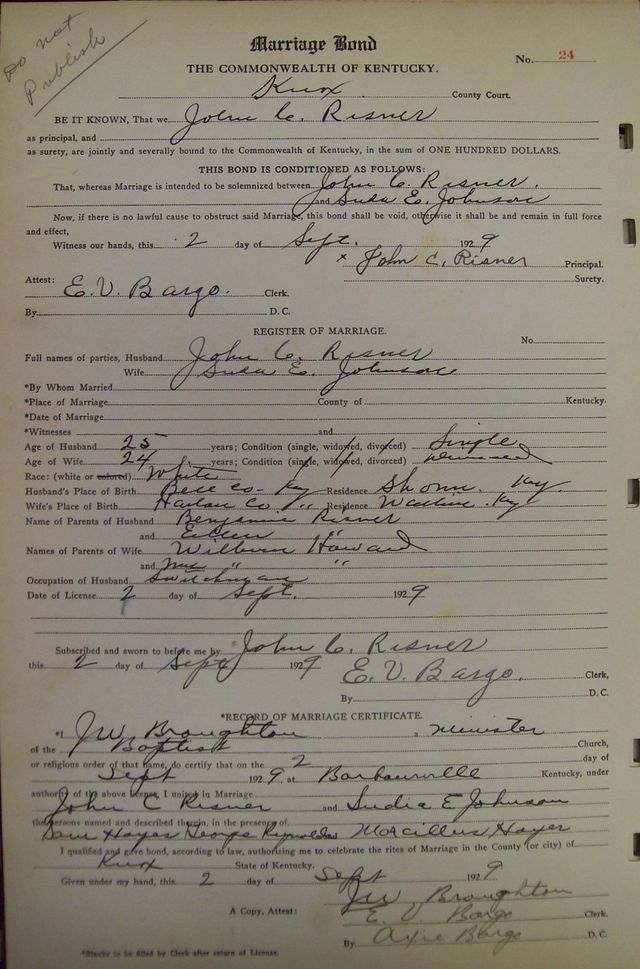 Do not
Publish
Marriage Bond
No. 24
THE COMMONWEALTH OF KENTUCKY.
Knox County Court.
BE IT KNOWN, That we John C. Risner
as principal, and
as surety, are jointly and severally bound to the Commonwealth of Kentucky, in the sum of ONE HUNDRED DOLLARS.
THIS BOND IS CONDITIONED AS FOLLOWS:
That, whereas Marriage is intended to be solemnized between John C. Risner.
and Suda E. Johnson
Now, if there is no lawful cause to obstruct said Marriage, this bond shall be void, otherwise it shall be and remain in full force
and effect,
Witness our hands, this 2 day of Sept. 1929
x John C. Risner Principal.
Surety.
Attest:
E. V. Bargo. Clerk.
By D. C.
REGISTER OF MARRIAGE.
No.
Full names of parties, Husband John C. Risner
Wife Suda E. Johnson
*By Whom Married
*Place of Marriage County of Kentucky.
*Date of Marriage
*Witnesses and
Age of Husband 25 years; Condition (single, widowed, divorced) Single
Age of Wife 24 years; Condition (single, widowed, divorced)
Race: (white or colored) White
Husband's Place of Birth Bell Co. Ky Residence Ky.
Wife's Place of Birth Harlan Co. " Residence Ky
Name of Parents of Husband Benjamin Risner
and "
Names of Parents of Wife Wilburn Howard
and Mrs " "
Occupation of Husband Switchman
Date of License 2 day of Sept. 1929
Subscribed and sworn to before me by John C. Risner
this 2 day of Sept 1929 E. V. Bargo. Clerk,
By D. C.
*RECORD OF MARRIAGE CERTIFICATE.
*I J W Broughton, minister
of the Baptist Church,
or religious order of that name, do certify that on the 2 day of
Sept 1929, at Barbourville Kentucky, under
authority of the above license, I united in Marriage
John C Risner and Sudia E Johnson
the persons named and described therein, in the presence of
Hayes George Reynolds Marcillus Hayes
I qualified and gave bond, according to law, authorizing me to celebrate the rites of Marriage in the County (or city) of
Knox State of Kentucky.
Given under my hand, this 2 day of Sept 1929
J W Broughton
A Copy, Attest: E. V. Bargo Clerk.
By Axie Bargo D. C.
*Blanks to be filled by Clerk after return of License.